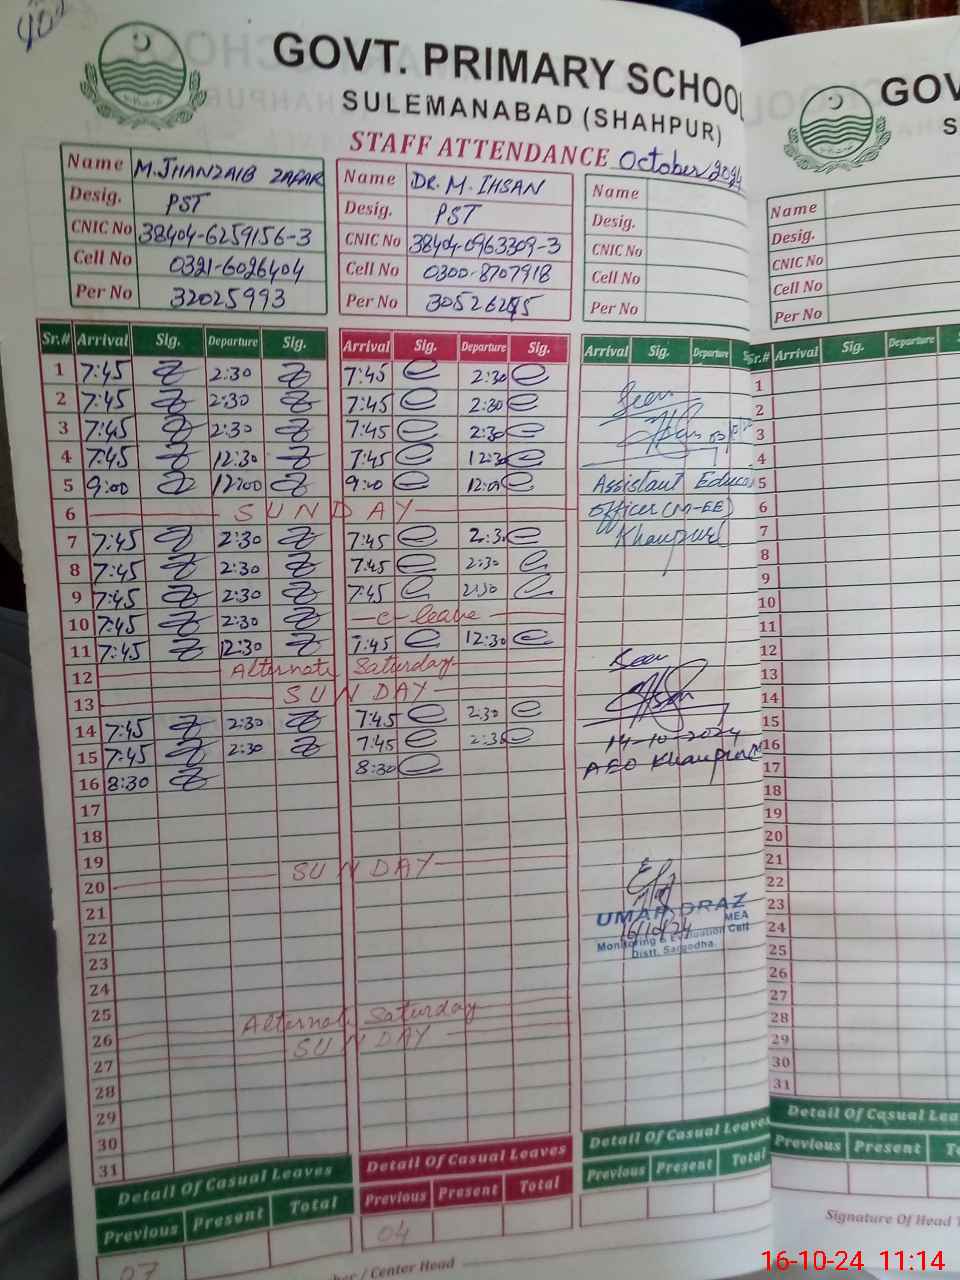 GOVT. PRIMARY SCHOOL
SULEMANABAD (SHAHPUR)
STAFF ATTENDANCE October 2024
Name M. JHANZAIB ZAFAR
Desig. PST
CNIC No 38404-6259156-3
Cell No 0321-6026404
Per No 32025993
Name DR. M. IHSAN
Desig. PST
CNIC No 38404-0963309-3
Cell No 0300-8707918
Per No
Name
Desig.
CNIC No
Cell No
Per No
Sr.# Arrival Sig. Departure Sig. Arrival Sig. Departure Sig. Arrival Sig. Departure
1 7:45 2:30 7:45 2:30
2 7:45 2:30 7:45 2:30
3 7:45 2:30 7:45 2:30
4 7:45 12:30 7:45 12:30
5 9:00 12:00 9:00 12:00
6 SUNDAY
7 7:45 2:30 7:45 2:30
8 7:45 2:30 7:45 2:30
9 7:45 2:30 7:45 2:30
10 7:45 2:30 c-leave
11 7:45 12:30 7:45 12:30
12 Alternate Saturday
13 SUNDAY
14 7:45 2:30 7:45 2:30
15 7:45 2:30 7:45 2:30
16 8:30 8:30
17
18
19
20 SUNDAY
21
22
23
24
25
26 Alternate Saturday
27 SUNDAY
28
29
30
31
Seen
Assistant
Officer (M-EE)
Khanpur
Seen
14-10-2024
AEO Khanpur
UMAR DRAZ
MEA
16/10/24
Monitoring & Evaluation Cell
Distt. Sargodha.
Detail Of Casual Leaves
Previous Present Total
07
Detail Of Casual Leaves
Previous Present Total
04
Detail Of Casual Leaves
Previous Present Total
/ Center Head
GOV
S
Name
Desig.
CNIC No
Cell No
Per No
Sr.# Arrival Sig. Departure
1
2
3
4
5
6
7
8
9
10
11
12
13
14
15
16
17
18
19
20
21
22
23
24
25
26
27
28
29
30
31
Detail Of Casual Lea
Previous Present
Signature Of Head
16-10-24 11:14